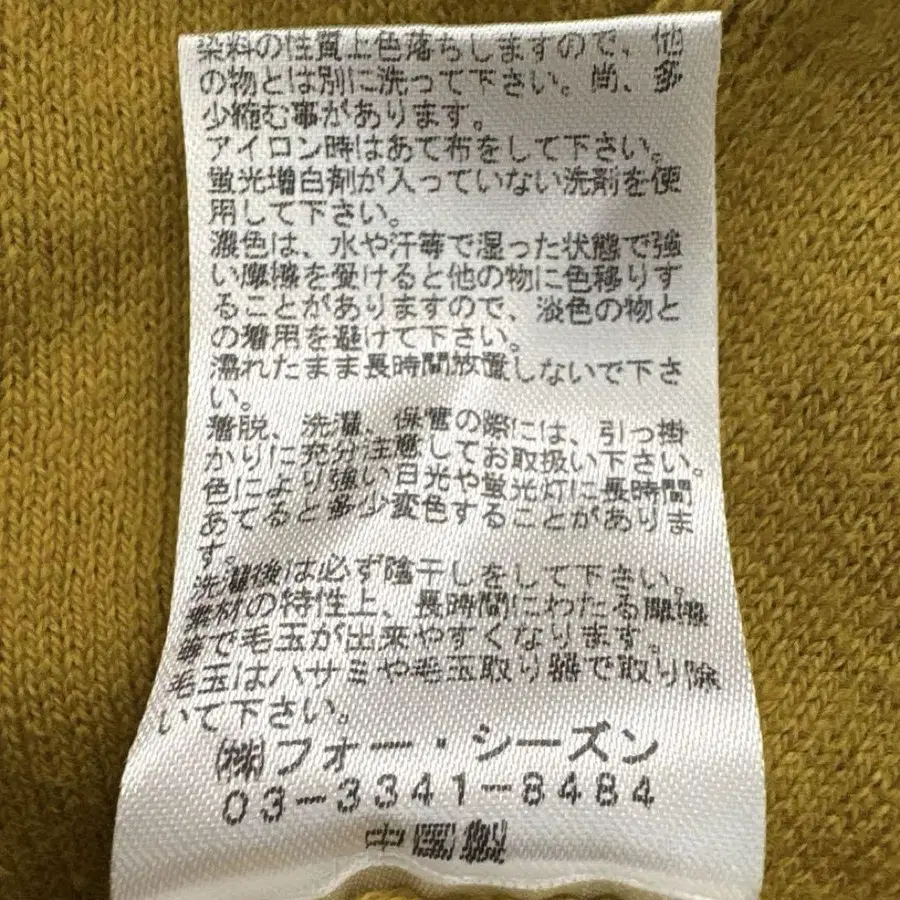 染料の性質上色落ちしますので、他
の物とは別に洗って下さい。尚、多
少縮む事があります。
アイロン時はあて布をして下さい。
蛍光増白剤が入っていない洗剤を使
用して下さい。
濃色は、水や汗等で湿った状態で強
い摩擦を受けると他の物に色移りす
ることがありますので、淡色の物と
の着用を避けて下さい。
濡れたまま長時間放置しないで下さ
い。
着脱、洗濯、保管の際には、引っ掛
かりに充分注意してお取扱い下さい。
色により強い日光や蛍光灯に長時間
あてると多少変色することがありま
す。
洗濯後は必ず陰干しをして下さい。
素材の特性上、長時間にわたる摩擦
等で毛玉が出来やすくなります。
毛玉はハサミや毛玉取り器で取り除
いて下さい。
㈱フォー・シーズン
03-3341-8484
中国製